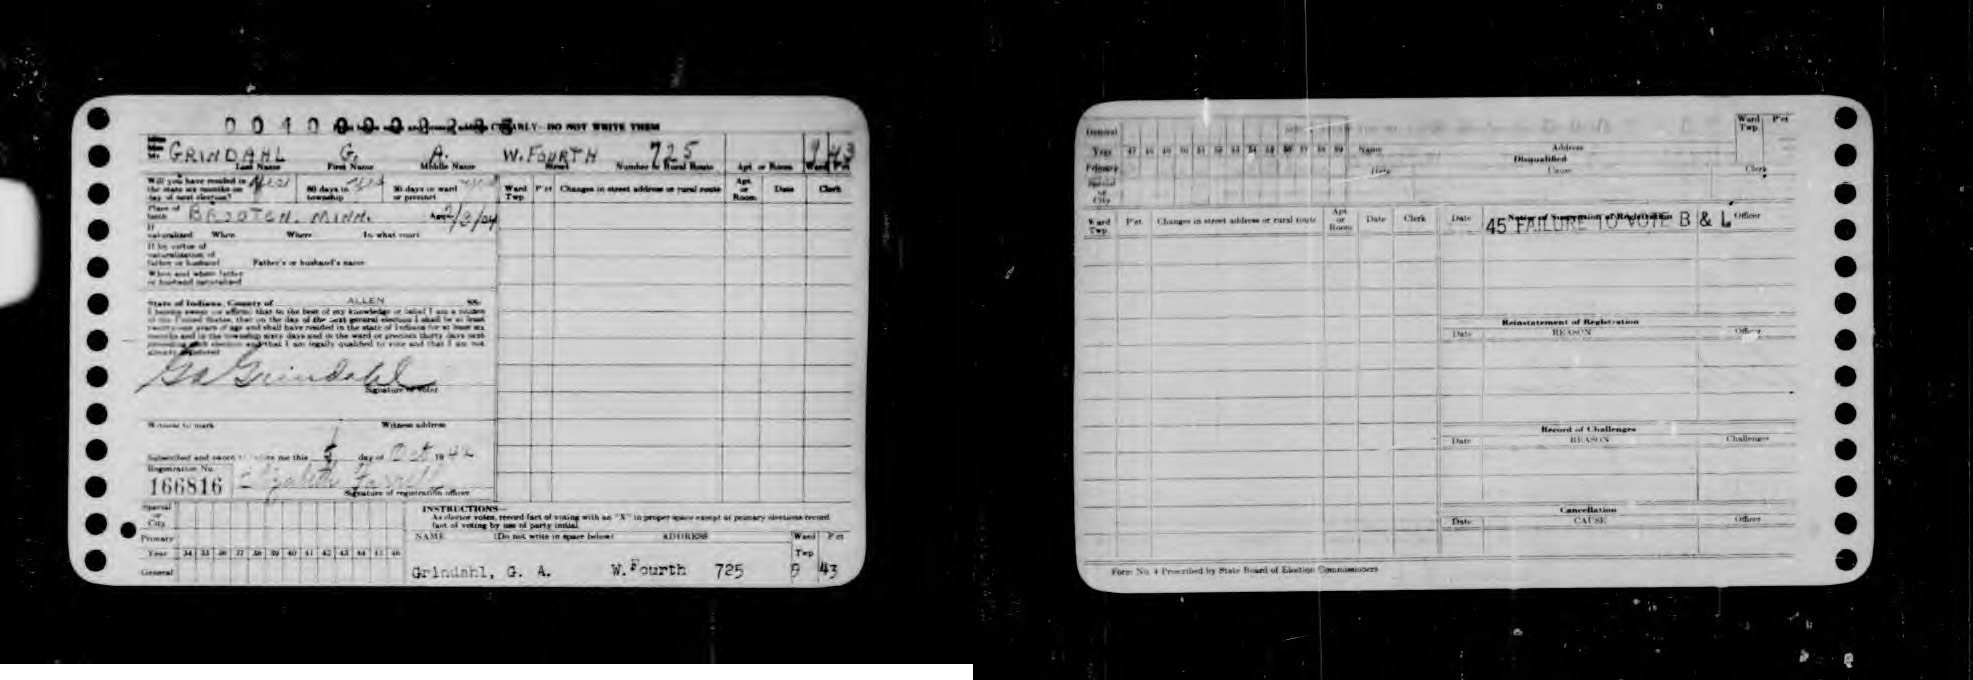 CLEARLY—DO NOT WRITE THEM
Mr. GRINDAHL G. A. W. FOURTH 725 9 43
Last Name First Name Middle Name Street Number or Rural Route Apt. or Room Ward P'ct
Will you have resided in the state six months on day of next election? Yes 60 days in township Yes 30 days in ward or precinct
Ward Twp P'ct Changes in street address or rural route Apt. or Room Date Clerk
Place of birth BROOTEN, MINN. 2/3/04
If naturalized When Where In what court
If by virtue of naturalization of father or husband Father's or husband's name
When and where father or husband naturalized
State of Indiana, County of ALLEN SS:
I hereby swear or affirm that to the best of my knowledge or belief I am a citizen
of the United States, that on the day of the next general election I shall be at least
twenty-one years of age and shall have resided in the state of Indiana for at least six
months and in the township sixty days and in the ward or precinct thirty days next
preceding such election and that I am legally qualified to vote and that I am not
already registered
G A Grindahl
Signature of voter
Witness to mark Witness address
Subscribed and sworn to before me this 5 day of Oct 1942
Registration No.
166816 Elizabeth Farrell
Signature of registration officer
Special or City
Primary
Year 34 35 36 37 38 39 40 41 42 43 44 45 46
General
INSTRUCTIONS—
As elector votes, record fact of voting with an "X" in proper space except at primary elections record
fact of voting by use of party initial
NAME (Do not write in space below) ADDRESS Ward Twp P'ct
Grindahl, G. A. W. Fourth 725 9 43
General
Year 47 48 49 50 51 52 53 54 55 56 57 58 59
Primary
Special or City
Name Address Ward Twp P'ct
Disqualified
Date Cause Clerk
Ward Twp P'ct Changes in street address or rural route Apt or Room Date Clerk
Date Notice of Suspension of Registration Officer
45 FAILURE TO VOTE B & L
Reinstatement of Registration
Date REASON Officer
Record of Challenges
Date REASON Challenger
Cancellation
Date CAUSE Officer
Form No. 4 Prescribed by State Board of Election Commissioners